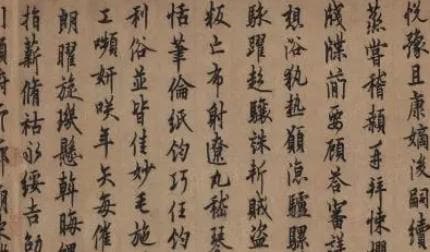 悅豫且康嫡後嗣續
蒸嘗稽顙再拜悚懼
牋牒簡要顧答審詳
想浴執熱願涼驢騾
駭躍超驤誅斬賊盜
叛亡布射遼丸嵇琴
恬筆倫紙鈞巧任釣
利俗並皆佳妙毛施
工嚬妍咲年矢每催
朗曜旋璣懸斡晦魄
指薪脩祜永綏吉劭
引領俯仰廊廟